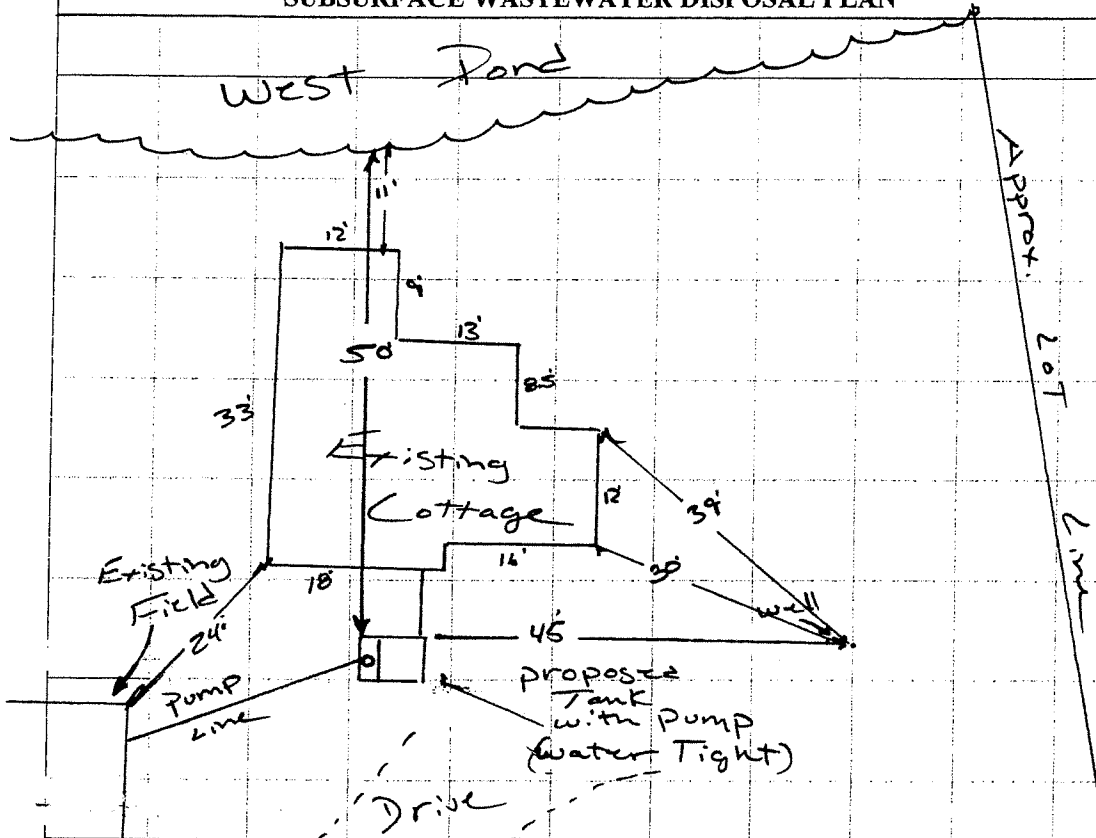 SUBSURFACE WASTEWATER DISPOSAL PLAN
West Pond
11'
12'
9'
13'
50'
8.5'
33'
Existing
Cottage
12'
39'
16'
30'
18'
Existing
Field
24'
well
45'
Pump
Line
proposed
Tank
with Pump
(Water Tight)
Drive
Approx. Lot Line